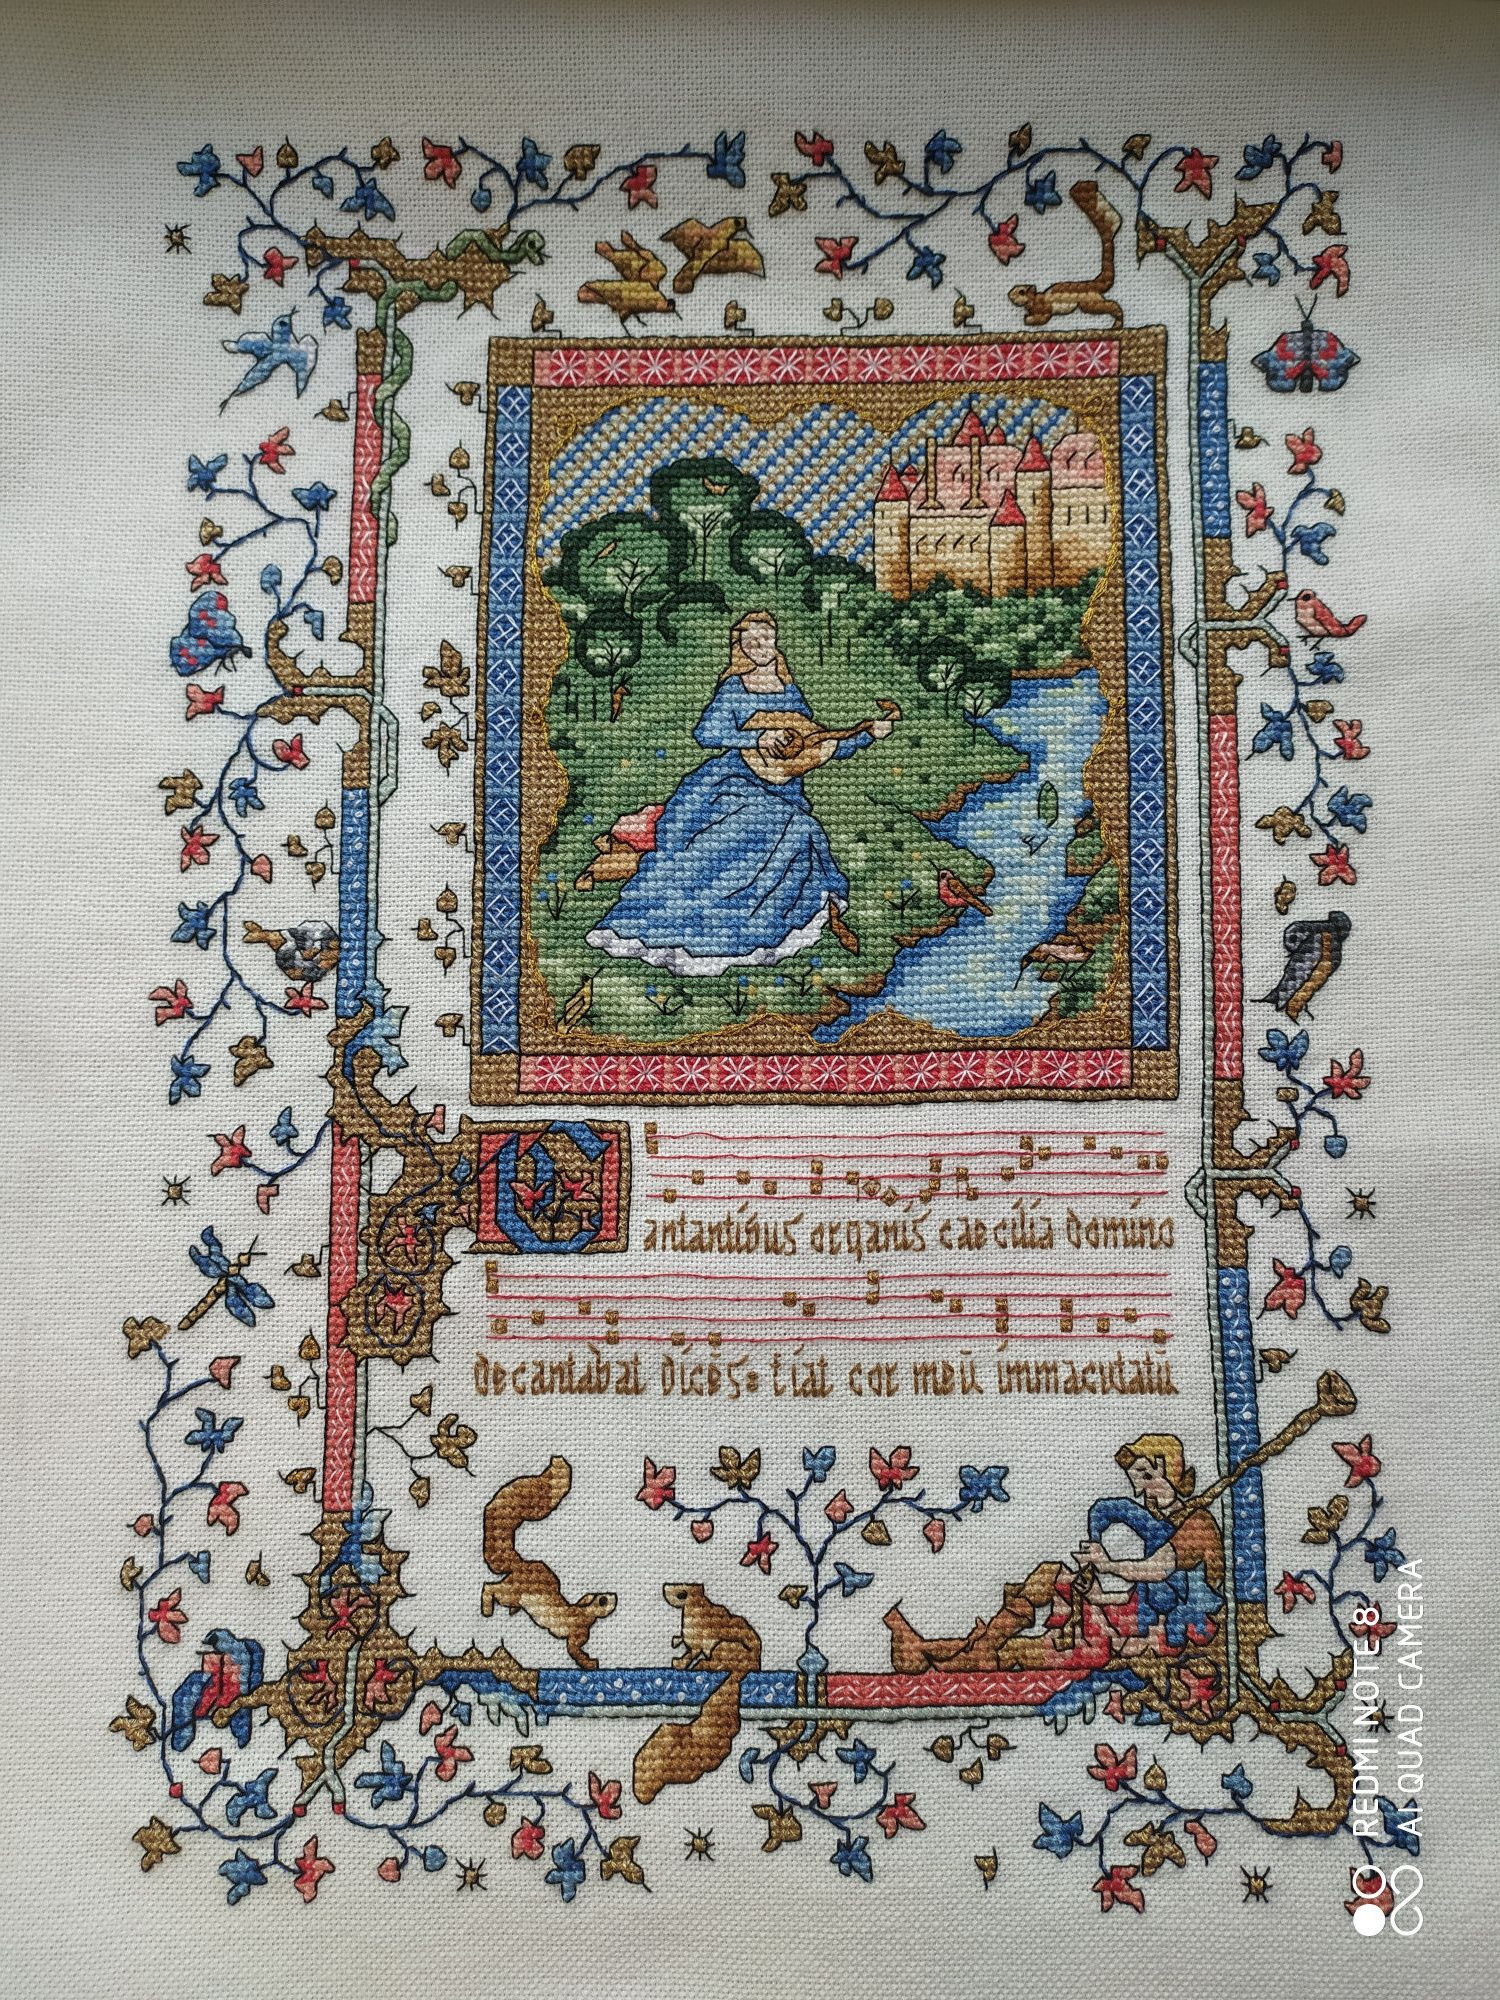 Cantantibus organis caecilia Domino
Decantabat Dicēs: fiat cor meū immaculatū
REDMI NOTE 8
AI QUAD CAMERA